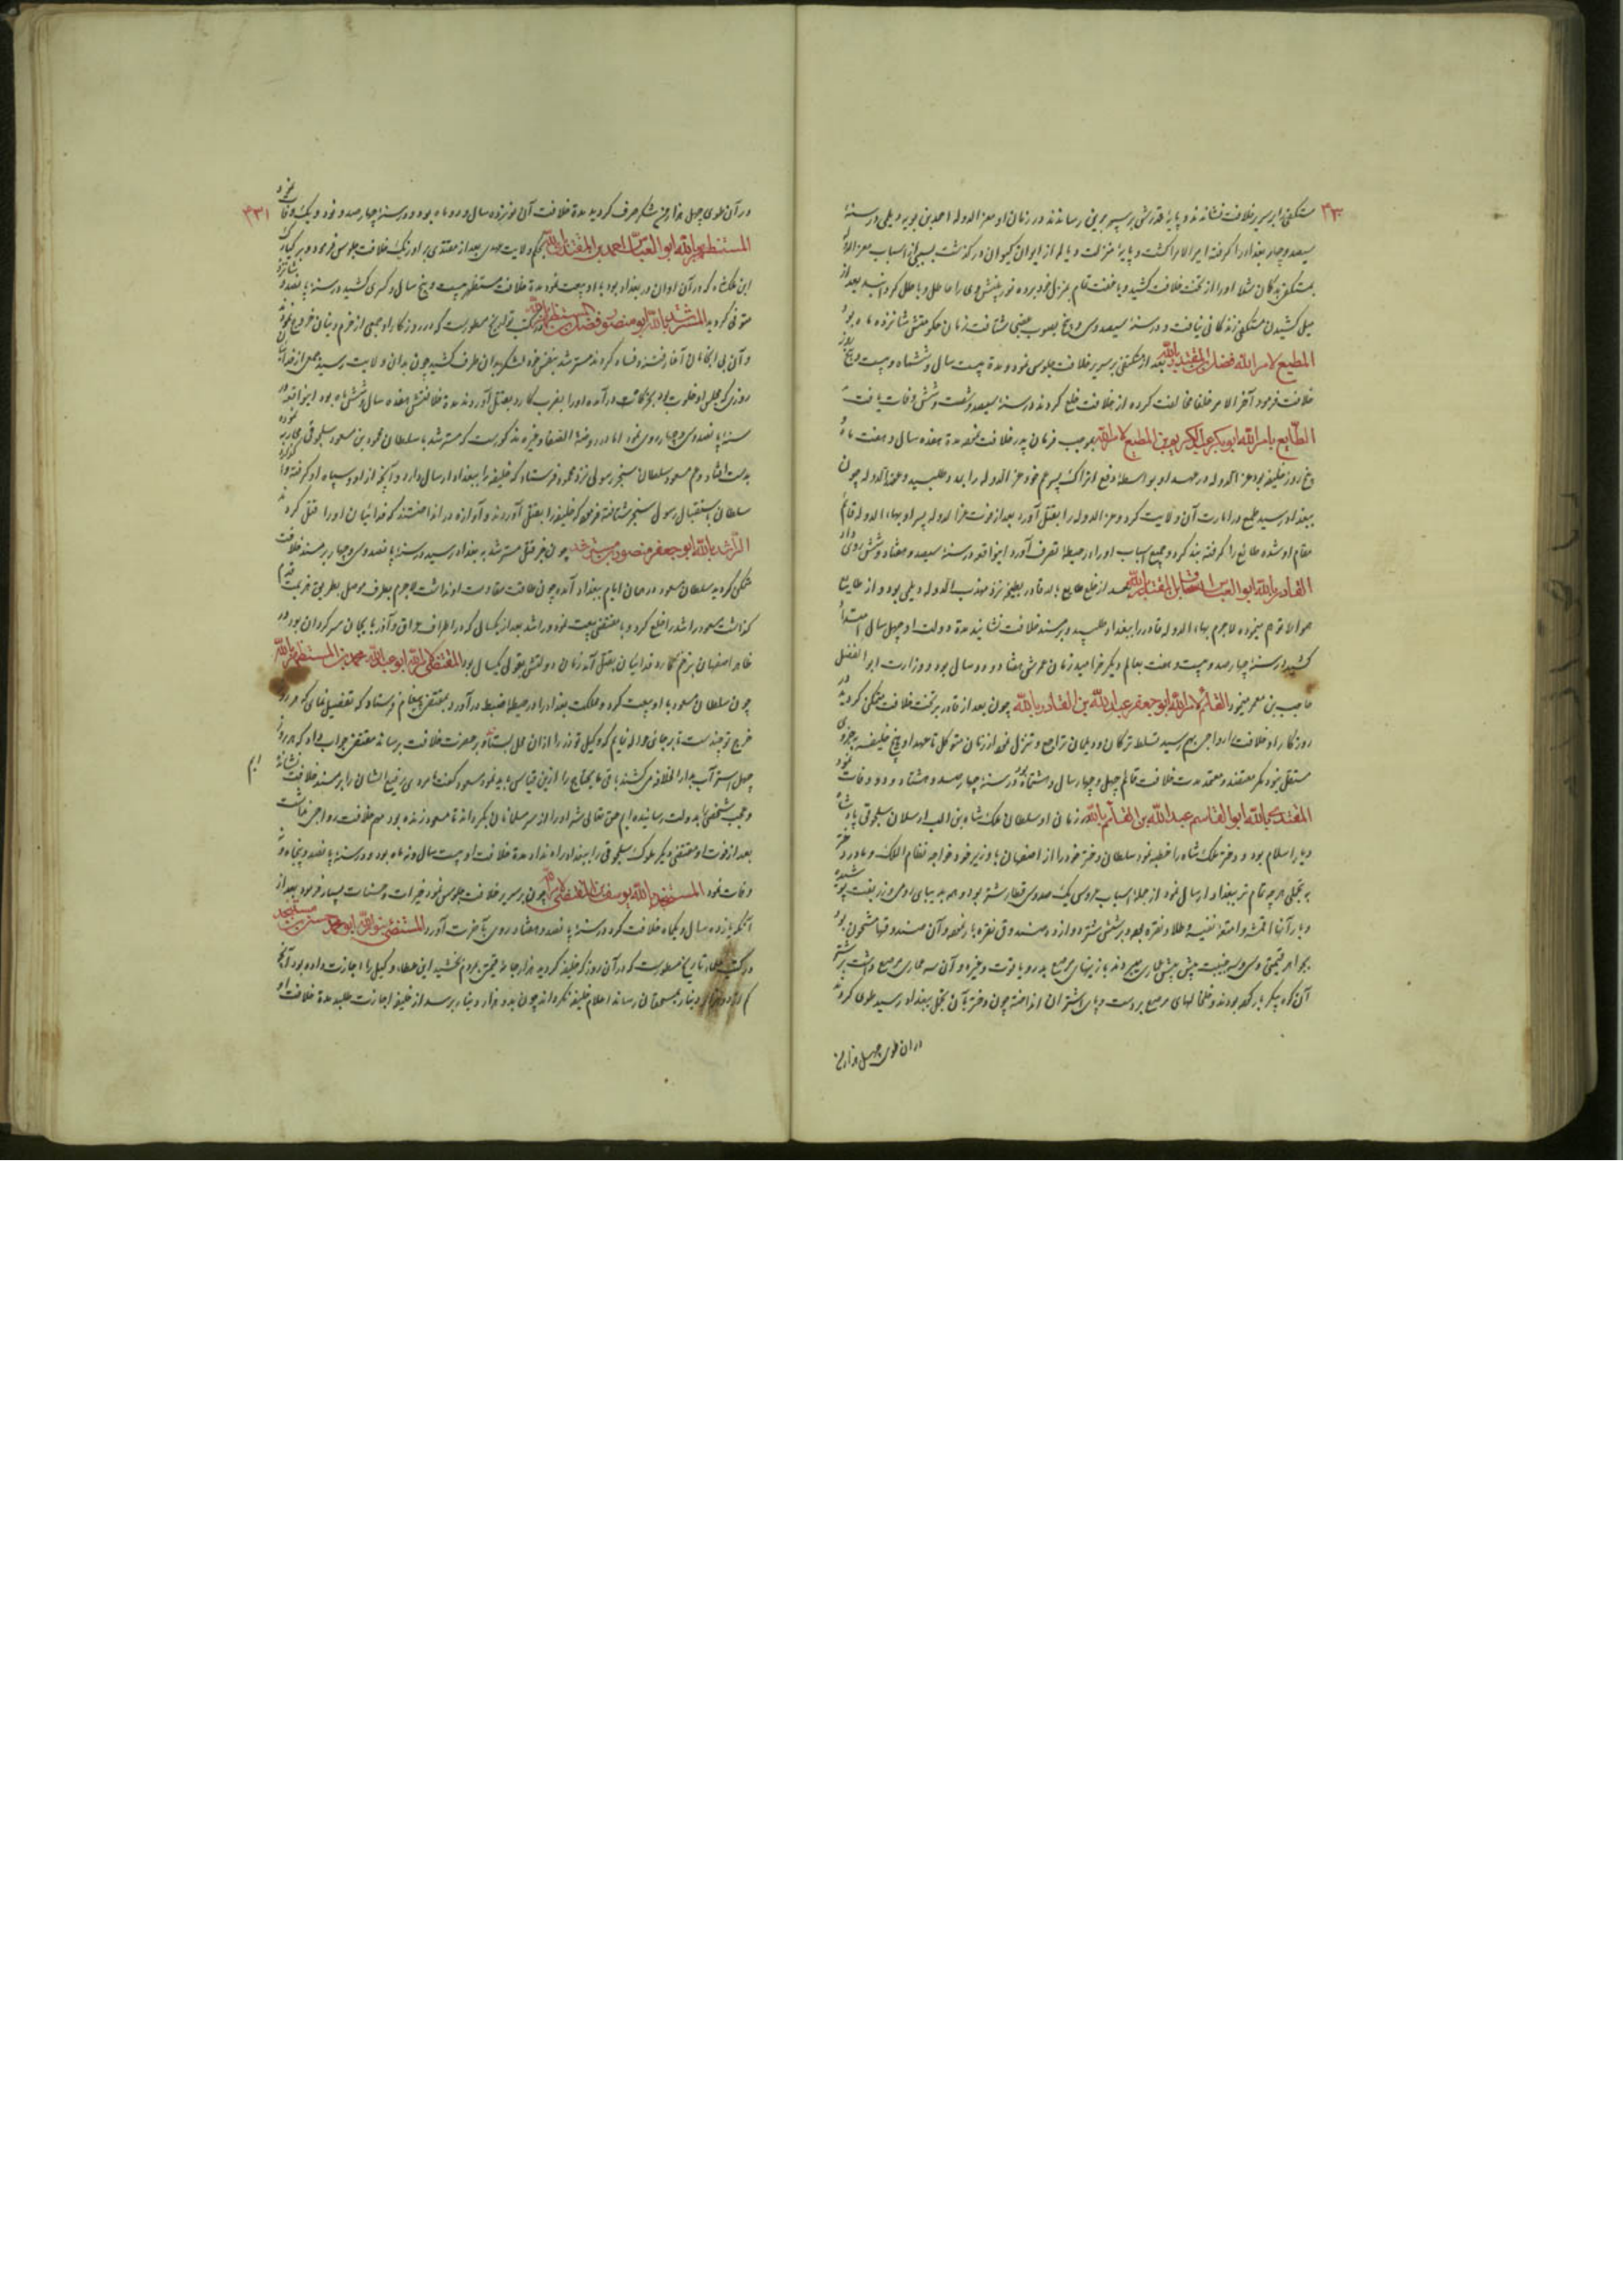 ۴۳۰
مستکفی را بر سریر خلافت نشاندند و پایهٔ قدرش بر سپهر برین رساندند در زمان او معز الدوله احمد بن بویه دیلمی در سنهٔ
سیصد و چهار بغداد را گرفته امیر الامرا گشت و پایهٔ منزلت و یا لم از ایوان کیوان درگذشت بسببی از اسباب معز الدوله
بمستکفی بدگمان شد او را از تخت خلافت کشید و بمنزل خود برده
میل کشیدن مستکفی زندگانی نیافت و در سنهٔ سیصد و سی و پنج بصوب عقبی شتافت زمان حکومتش شانزده ماه بود
المطیع لامر الله فضل بن المقتدر بالله بعد از مستکفی بر سریر خلافت جلوس نمود و مدة بیست سال و ششماه و بیست و پنج روز
خلافت فرمود آخر الامر خلفا مخالفت کرده از خلافت خلع کردند در سنهٔ سیصد و شصت و شش وفات یافت
الطایع بامر الله ابو بکر عبد الکریم بن المطیع لامر الله بموجب فرمان پدر خلافت نمود مدة هفده سال و هفت ماه
و پنج روز خلیفه بود عز الدوله در عهد او بواسطهٔ دفع اتراک پسر عم خود عز الدوله را بمدد طلبید و عضد الدوله چون
ببغداد رسید طمع در امارت آن ولایت کرد و عز الدوله را بقتل آورد بعد از فوت عز الدوله پسر او بهاء الدوله قائم
مقام او شده طائع را گرفته بند کرد و جمیع اسباب او را در حیطهٔ تصرف آورد اینواقعه در سنهٔ سیصد و هشتاد و شش روی داد
القادر بالله ابو العباس احمد بن اسحاق بن المقتدر بالله بعد از خلع طایع بالله قادر ببطیحه نزد مهذب الدوله دیلمی بود و از طایع
هوالا توهم مینمود لاجرم بهاء الدوله قادر را ببغداد طلبید و بر مسند خلافت نشانید مدة دولت او چهل سال امتداد
کشید در سنهٔ چهارصد و بیست و هفت بعالم دیگر خرامید زمان عمرش هشتاد و دو سال بود و وزارت ابو الفضل
حاجب بن معمر مینمود القائم لامر الله ابو جعفر عبد الله بن القادر بالله چون بعد از قادر بر تخت خلافت متمکن گردید در
روزگار او خلافت را رواجی بهم رسید تسلط ترکان و دیلمان تراجع و تنزل نمود از زمان متوکل تا عهد او هیچ خلیفه بخودی
مستقل نبود مگر معتضد و معتمد مدت خلافت قائم چهل و چهار سال و هشتماه بود در سنهٔ چهارصد و هشتاد و دو وفات نمود
المقتدی بالله ابو القاسم عبد الله بن القائم بالله در زمان او سلطان ملک شاه بن الب ارسلان سلجوقی پادشاه
دیار اسلام بود و دختر ملک شاه را خطبه نمود سلطان دختر خود را از اصفهان با وزیر خود خواجه نظام الملک و مادر دختر
به تجملی هر چه تمام تر ببغداد ارسال نمود از جمله اسباب عروسی یک صد و سی قطار شتر بود و همه بدیبای رومی و زربفت پوشیده
و بار آنها اقمشه و امتعهٔ نفیسه و طلا و نقره بود و بر شش شتر دوازده صندوق نقره بار نموده و آن صندوقها مشحون بود
بجواهر قیمتی و سی و سه جنیبت پیش پیش عماری میبردند با زینهای مرصع بدر و یاقوت و غیره و آن سه عماری مرصع داشت بر شتر
آن کوه پیکر بار کرده بودند و خلخالهای مرصع بر دست و پای اشتران انداخته چون دختر با آن تجمل ببغداد رسید طوی کردند
در آن طوی چهل هزار من
۴۳۱
در آن طوی چهل هزار من شکر صرف گردید مدة خلافت آن نوزده سال و دو ماه بود و در سنهٔ چهارصد و نود و یک وفات نمود
المستظهر بالله ابو العباس احمد بن المقتدی بالله بحکم ولایت عهدی بعد از مقتدی بر اورنگ خلافت جلوس فرمود و برکیارق
ابن ملکشاه که در آن اوان در بغداد بود با او بیعت نمود مدة خلافت مستظهر بیست و پنج سال و کسری کشید در سنهٔ پانصد و شانزده
متوفی گردید المسترشد بالله ابو منصور فضل بن مستظهر بالله در کتب تواریخ مسطور است که در روزگار او جمعی از خرم دینان خروج نموده
و آن بی ایمانان آغاز فتنه و فساد کردند مسترشد بنفس خود لشکر بدان طرف کشید چون بدانی ولایت رسید جمعی از فدائیان
روزی که مجلس او خلوت بود بحرکات درآمده او را بضرب کارد بقتل آوردند مدة خلافتش هفده سال و شش ماه بود اینواقعه در
سنهٔ پانصد و سی و چهار روی نمود اما در روضة الصفا و غیره مذکورست که مسترشد با سلطان محمود بن مسعود سلجوقی محاربه نموده
بدست افتاد و عم مسعود سلطان سنجر رسولی نزد محمود فرستاد که خلیفه را ببغداد ارسال دارد و آنچه از او و سپاه او گرفته واگذارد
سلطان باستقبال رسول سنجر شتافته فرمود که خلیفه را بقتل آوردند و آوازه در انداختند که فدائیان او را قتل کردند
الراشد بالله ابو جعفر منصور بن مسترشد چون خبر قتل مسترشد به بغداد رسید در سنهٔ پانصد و سی و چهار بر مسند خلافت
متمکن گردید سلطان مسعود در همان ایام ببغداد آمده چون طاقت مقاومت او نداشت لاجرم بطرف موصل بطریق هزیمت قدم
گذاشت مسعود راشد را خلع کرد و با مقتفی بیعت نمود و راشد بعد از یکسالی که در اطراف عراق و آذربایجان سرگردان بود در
ظاهر اصفهان بزخم کارد فدائیان بقتل آمد زمان دولتش بقولی یکسال بود المقتفی لامر الله ابو عبد الله محمد بن المستظهر بالله
چون سلطان مسعود با او بیعت کرد و مملکت بغداد را در حیطهٔ ضبط درآورد بمقتفی پیغام فرستاد که تفصیل نمای که هر روز
خرج تو چند است تا بر جائی حواله نمایم که وکیل تو زر را از آن محل بستاند و بر حضرت خلافت برساند مقتفی جواب داد که هر روز
چهل استر آب بدار الخلافه می کشند باقی مایحتاج را ازین قیاس باید نمود مسعود گفت ما مردی رفیع الشان را بر مسند خلافت نشانده ایم
و عجب شخصی را بدولت رسانیده ایم حق تعالی شر او را از سر مسلمانان بگرداند تا مسعود زنده بود مهم خلافت رواجی نداشت
بعد از فوت او مقتفی دیگر ملوک سلجوقی را ببغداد راه نداد مدة خلافت او بیست سال و نه ماه بود و در سنهٔ پانصد و پنجاه و
وفات نمود المستنجد بالله یوسف بن المقتفی لامر الله چون بر سریر خلافت جلوس نمود خیرات و حسنات بسیار فرمود بعد از
آنکه یازده سال و یکماه خلافت کرد در سنهٔ پانصد و هفتاد روی بآخرت آورد المستضئ بنور الله ابو محمد حسن بن مستنجد
در کتب تاریخ مسطورست که در آن روز که خلیفه گردید هزار جامهٔ قیمتی بمردم بخشید این عطا و وکیل را اجازت داده بود آنچه
کم از ده هزار دینار بمستحقان رساند اعلام خلیفه نگرداند چون بده هزار دینار برسد از خلیفه اجازت طلبد مدة خلافت او